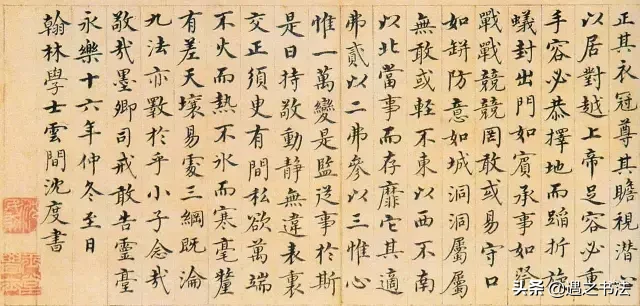 正其衣冠尊其瞻視潛心
以居對越上帝足容必重
手容必恭擇地而蹈折旋
蟻封出門如賓承事如祭
戰戰兢兢罔敢或易守口
如缾防意如城洞洞屬屬
無敢或輕不東以西不南
以北當事而存靡它其適
弗貳以二弗參以三惟心
惟一萬變是監從事於斯
是曰持敬動靜無違表裏
交正須臾有間私欲萬端
不火而熱不冰而寒毫釐
有差天壤易處三綱既淪
九法亦斁於乎小子念哉
敬哉墨卿司戒敢告靈臺
永樂十六年仲冬至日
翰林學士雲間沈度書
头条 @遇之书法